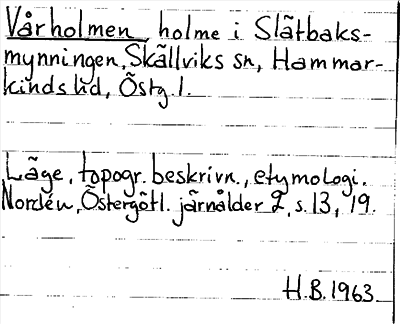 Vårholmen, holme i Slätbaks-
mynningen, Skällviks sn, Hammar-
kinds hd, Östg l.
Läge, topogr. beskrivn., etymologi.
Nordén, Östergötl. järnålder 2, s. 13, 19.
H.B. 1963